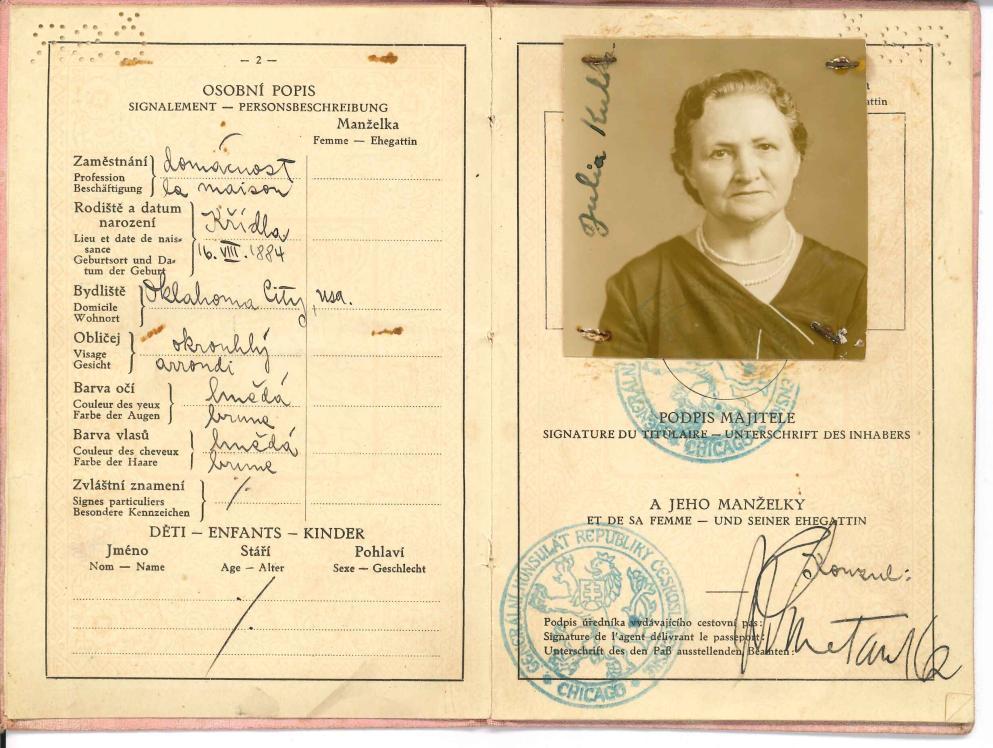 — 2 —
OSOBNÍ POPIS
SIGNALEMENT — PERSONSBESCHREIBUNG
Manželka
Femme — Ehegattin
Zaměstnání
Profession
Beschäftigung
domácnost
la maison
Rodiště a datum
narození
Lieu et date de nais-
sance
Geburtsort und Da-
tum der Geburt
Křídla
16. VIII. 1884
Bydliště
Domicile
Wohnort
Oklahoma City, usa.
Obličej
Visage
Gesicht
okrouhlý
arrondi
Barva očí
Couleur des yeux
Farbe der Augen
hnědá
brune
Barva vlasů
Couleur des cheveux
Farbe der Haare
hnědá
brune
Zvláštní znamení
Signes particuliers
Besondere Kennzeichen
DĚTI — ENFANTS — KINDER
Jméno Stáří Pohlaví
Nom — Name Age — Alter Sexe — Geschlecht
Julia
attin
CHICAGO
PODPIS MAJITELE
SIGNATURE DU TITULAIRE — UNTERSCHRIFT DES INHABERS
A JEHO MANŽELKY
ET DE SA FEMME — UND SEINER EHEGATTIN
Konzul:
Podpis úředníka vydávajícího cestovní pas:
Signature de l'agent délivrant le passeport:
Unterschrift des den Paß ausstellenden Beamten:
GENERÁLNÍ KONSULÁT REPUBLIKY ČESKOSLOVENSKÉ
CHICAGO